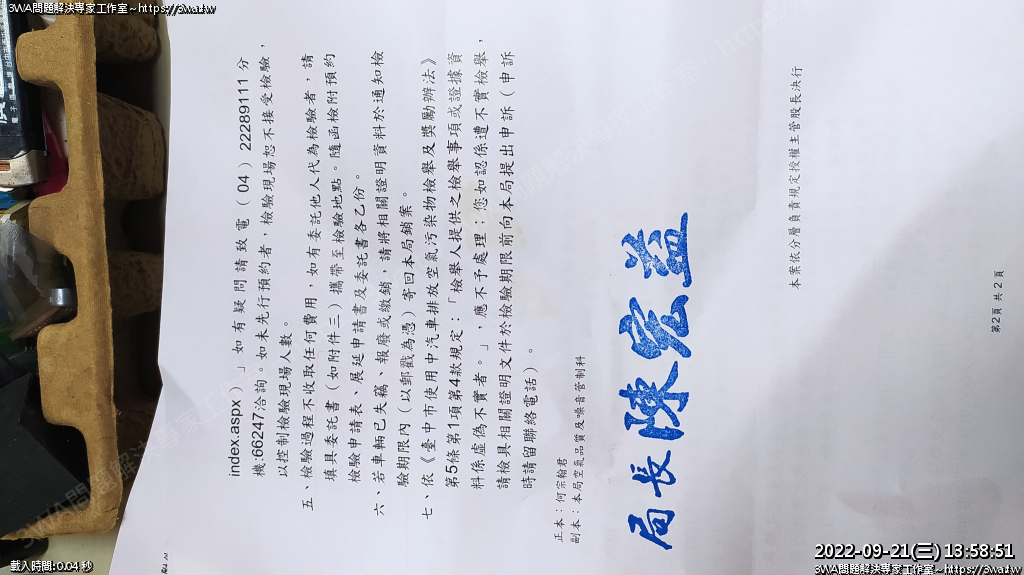 3WA問題解決專家工作室~https://3wa.tw
index.aspx）。」如有疑問請致電（04）22289111分
機:66247洽詢。如未先行預約者，檢驗現場恕不接受檢驗，
以控制檢驗現場人數。
五、檢驗過程不收取任何費用，如有委託他人代為檢驗者，請
填具委託書（如附件三）攜帶至檢驗地點。隨函檢附預約
檢驗申請表、展延申請書及委託書各乙份。
六、若車輛已失竊、報廢或繳銷，請將相關證明資料於通知檢
驗期限內（以郵戳為憑）寄回本局銷案。
七、依《臺中市使用中汽車排放空氣污染物檢舉及獎勵辦法》
第5條第1項第4款規定：「檢舉人提供之檢舉事項或證據資
料係虛偽不實者。」，應不予處理；您如認係遭不實檢舉，
請檢具相關證明文件於檢驗期限前向本局提出申訴（申訴
時請留聯絡電話）。
正本：何宗翰君
副本：本局空氣品質及噪音管制科
局長陳宏益
本案依分層負責規定授權主管股長決行
第2頁 共2頁
載入時間:0.04 秒
2022-09-21(三) 13:58:51
3WA問題解決專家工作室~https://3wa.tw